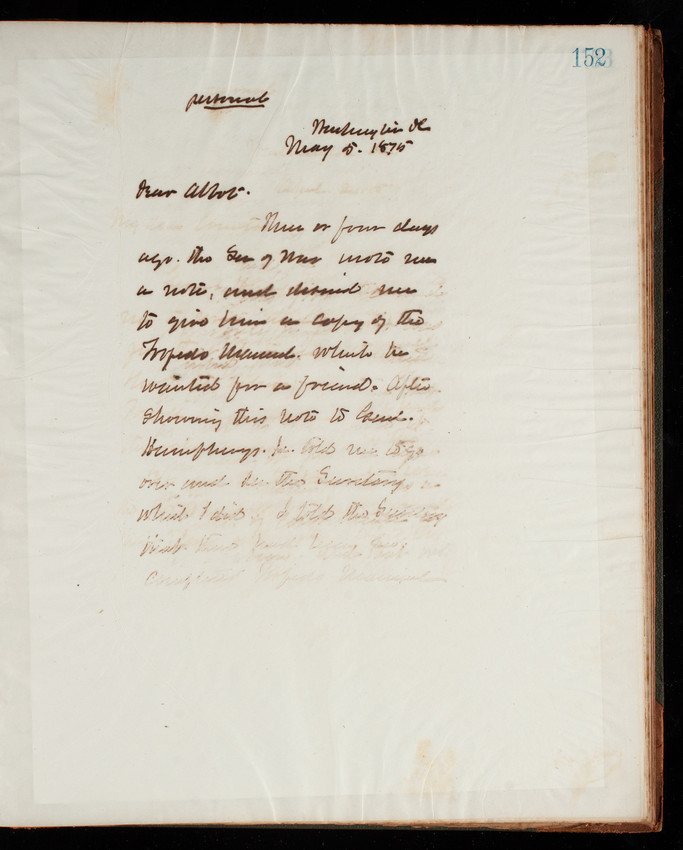 152
personal
Washington DC
May 5. 1875
Dear Abbot.
Three or four days
ago. the Sec of War wrote me
a note, and desired me
to give him a copy of the
Torpedo Manual. which he
wanted for a friend. After
showing this note to Genl.
Humphreys. he told me to go
over and see the Secretary.
which I did I told the Secretary
that there had been
completed Torpedo Manual